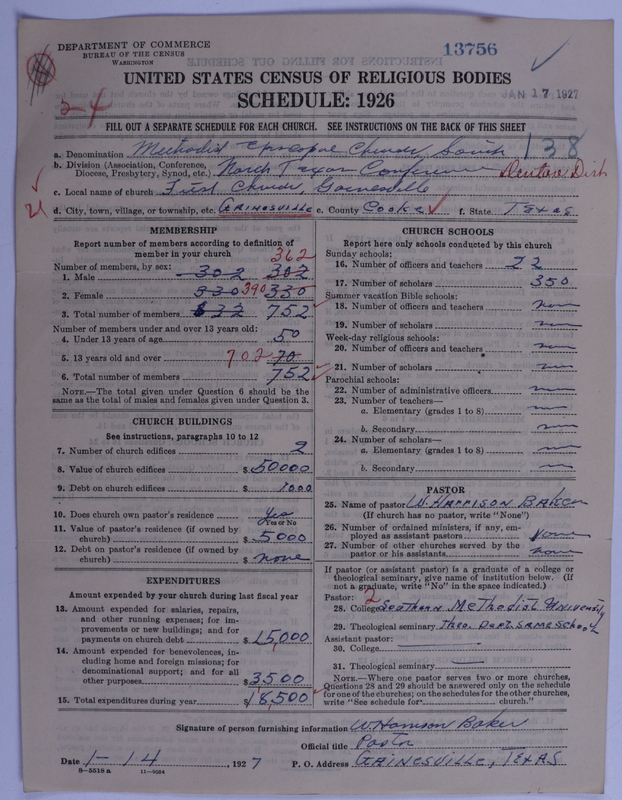 DEPARTMENT OF COMMERCE
BUREAU OF THE CENSUS
WASHINGTON
13756
UNITED STATES CENSUS OF RELIGIOUS BODIES
JAN 17 1927
SCHEDULE: 1926
2-4
FILL OUT A SEPARATE SCHEDULE FOR EACH CHURCH. SEE INSTRUCTIONS ON THE BACK OF THIS SHEET
138
a. Denomination Methodist Episcopal Church, South
b. Division (Association, Conference, Diocese, Presbytery, Synod, etc.) North Texas Conference Denton Dist
c. Local name of church First Church Gainesville
21
d. City, town, village, or township, etc. GAINESVILLE e. County Cooke f. State Texas
MEMBERSHIP
Report number of members according to definition of member in your church
Number of members, by sex:
362
1. Male 302 302
2. Female 330 390 330
3. Total number of members 632 752
Number of members under and over 13 years old:
4. Under 13 years of age 50
5. 13 years old and over 702 70
6. Total number of members 752
NOTE.—The total given under Question 6 should be the same as the total of males and females given under Question 3.
CHURCH BUILDINGS
See instructions, paragraphs 10 to 12
7. Number of church edifices 2
8. Value of church edifices $50000
9. Debt on church edifices $1000
10. Does church own pastor's residence Yes
Yes or No
11. Value of pastor's residence (if owned by church) $5000
12. Debt on pastor's residence (if owned by church) $none
EXPENDITURES
Amount expended by your church during last fiscal year
13. Amount expended for salaries, repairs, and other running expenses; for improvements or new buildings; and for payments on church debt $15,000
14. Amount expended for benevolences, including home and foreign missions; for denominational support; and for all other purposes $3500
15. Total expenditures during year $18,500
CHURCH SCHOOLS
Report here only schools conducted by this church
Sunday schools:
16. Number of officers and teachers 22
17. Number of scholars 350
Summer vacation Bible schools:
18. Number of officers and teachers none
19. Number of scholars
Week-day religious schools:
20. Number of officers and teachers
21. Number of scholars
Parochial schools:
22. Number of administrative officers
23. Number of teachers—
a. Elementary (grades 1 to 8)
b. Secondary
24. Number of scholars—
a. Elementary (grades 1 to 8)
b. Secondary
PASTOR
25. Name of pastor W. HARRISON BAKER
(If church has no pastor, write "None")
26. Number of ordained ministers, if any, employed as assistant pastors None
27. Number of other churches served by the pastor or his assistants none
If pastor (or assistant pastor) is a graduate of a college or theological seminary, give name of institution below. (If not a graduate, write "No" in the space indicated.)
Pastor: 2
28. College Southern Methodist University
29. Theological seminary Theo. Dept. SAME School
Assistant pastor:
30. College
31. Theological seminary
NOTE.—Where one pastor serves two or more churches, Questions 28 and 29 should be answered only on the schedule for one of the churches; on the schedules for the other churches, write "See schedule for church."
Signature of person furnishing information W. Harrison Baker
Official title Pastor
Date 1-14, 1927 P. O. Address GAINESVILLE, TEXAS
8—5518 a 11—9084